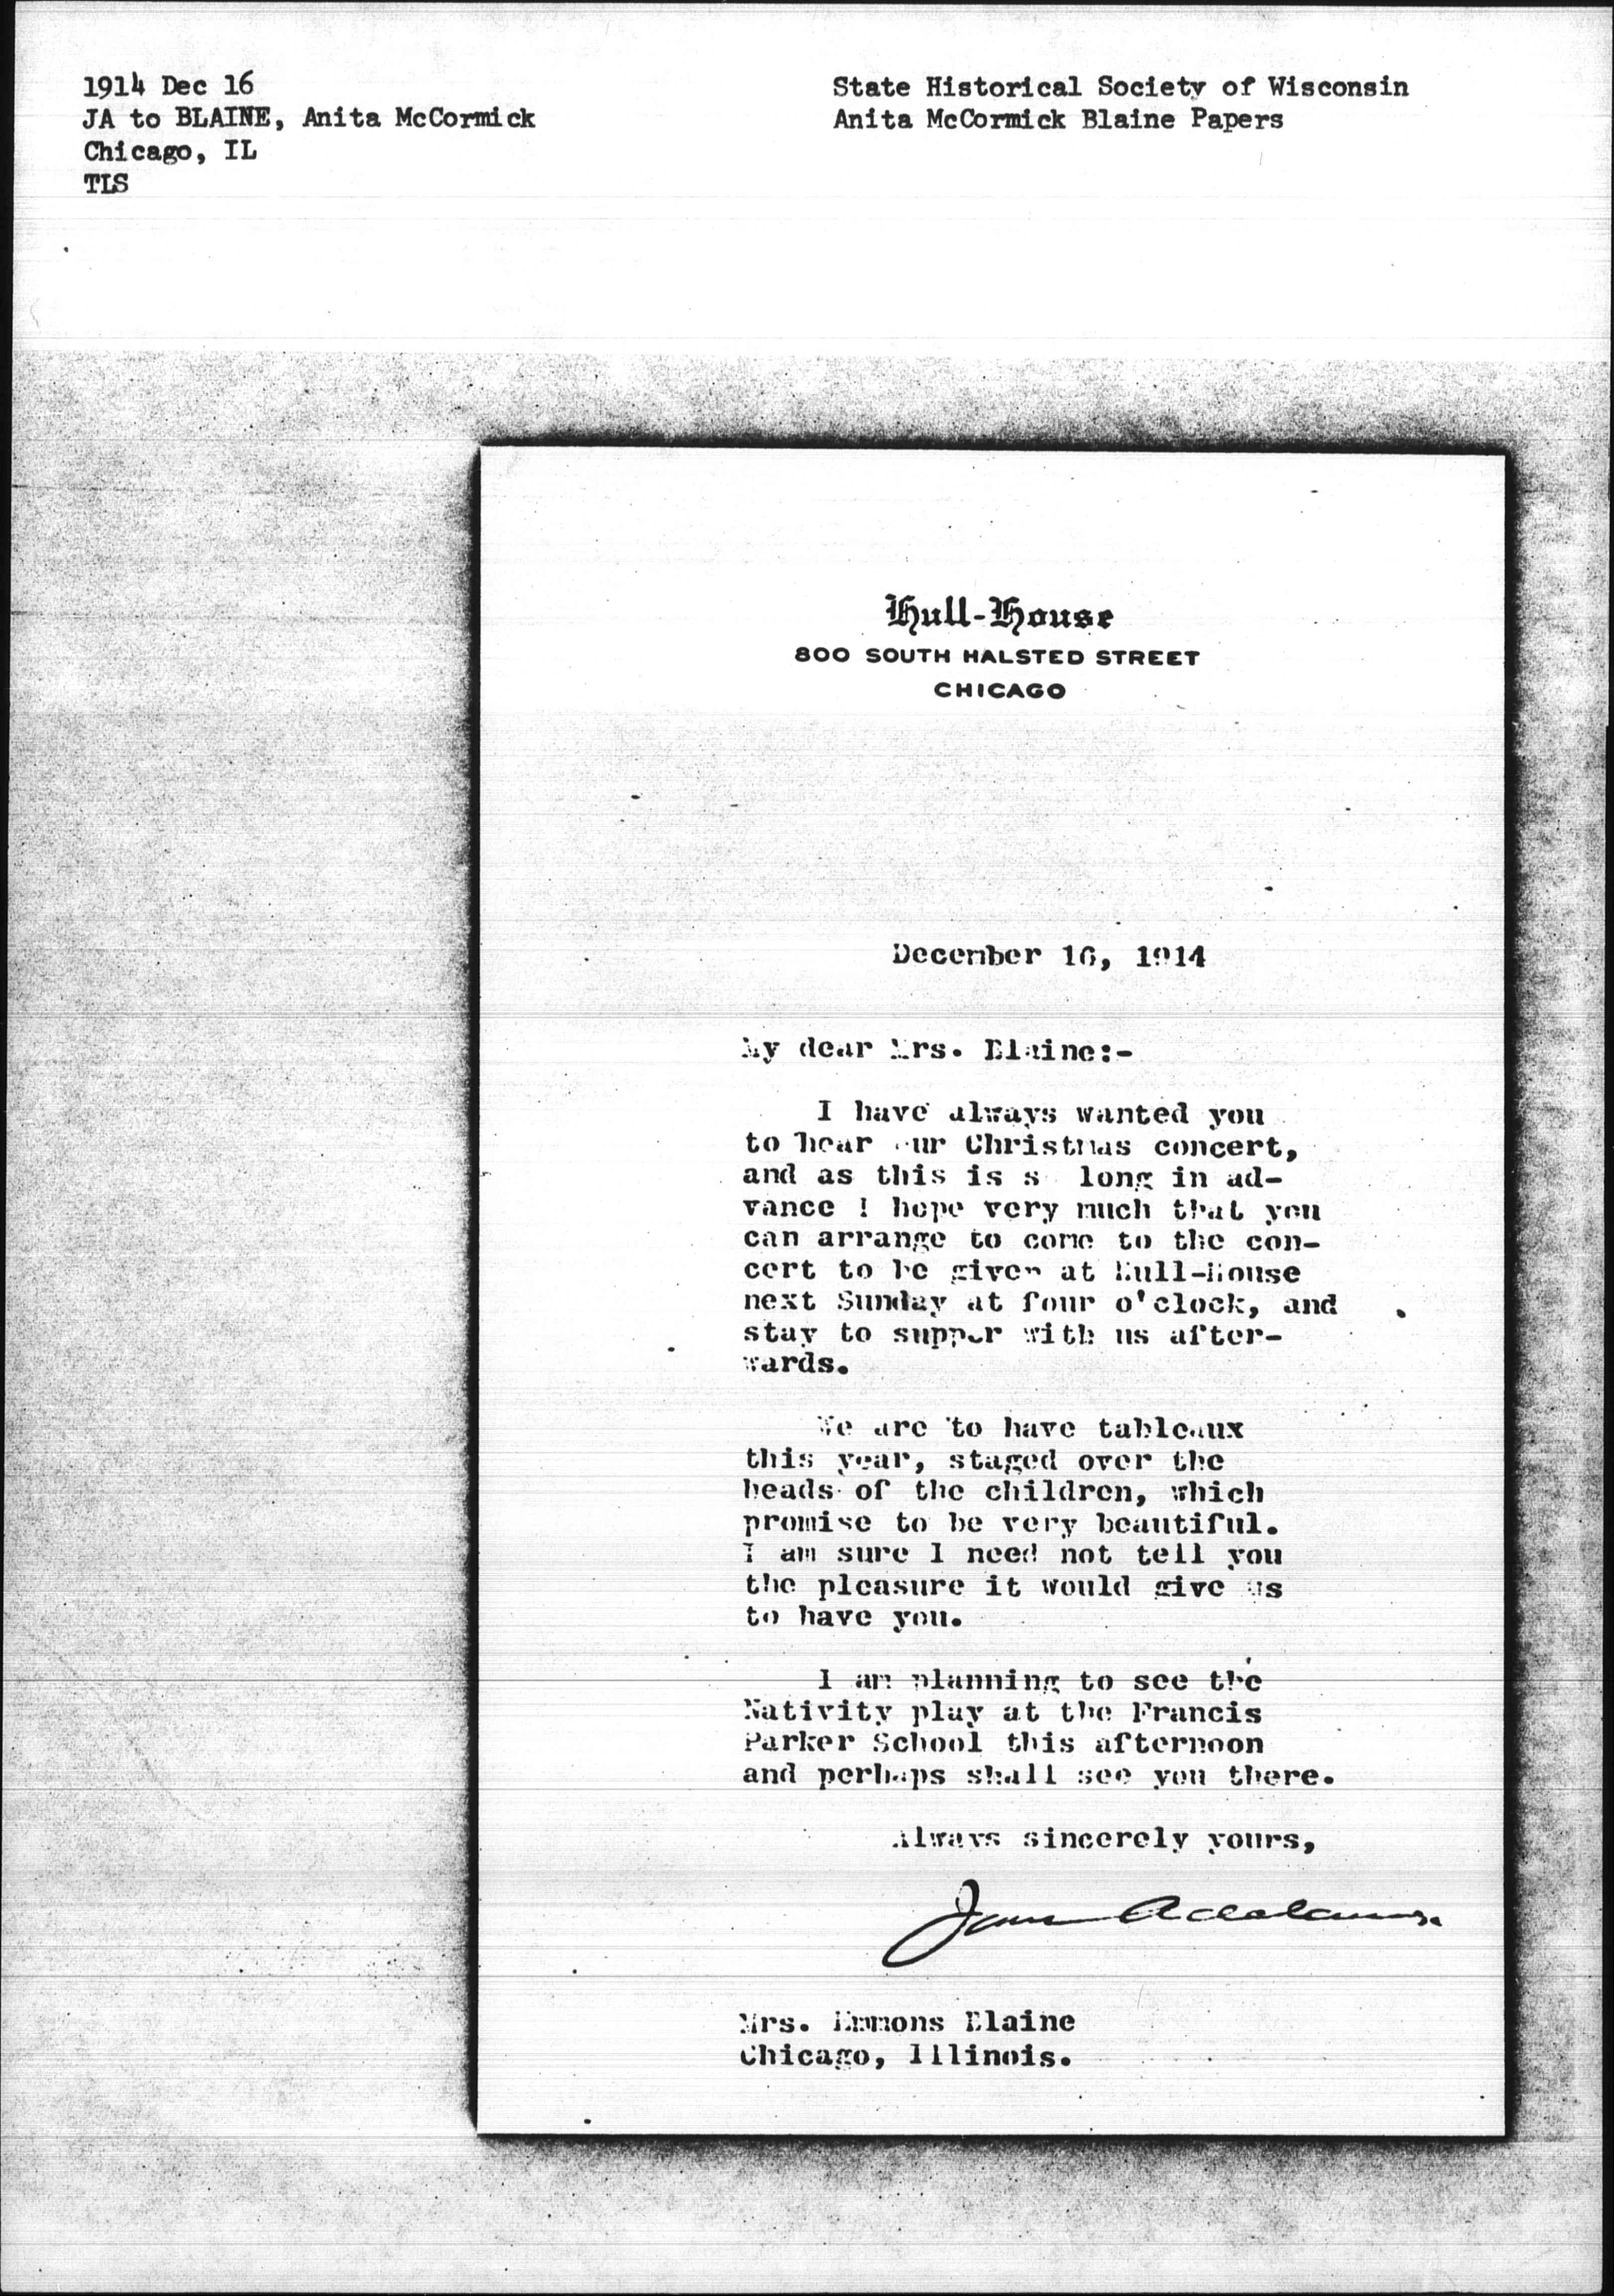 1914 Dec 16
JA to BLAINE, Anita McCormick
Chicago, IL
TLS
State Historical Society of Wisconsin
Anita McCormick Blaine Papers
Hull-House
800 SOUTH HALSTED STREET
CHICAGO
December 16, 1914
My dear Mrs. Blaine:-
I have always wanted you
to hear our Christmas concert,
and as this is so long in ad-
vance I hope very much that you
can arrange to come to the con-
cert to be given at Hull-House
next Sunday at four o'clock, and
stay to supper with us after-
wards.
We are to have tableaux
this year, staged over the
heads of the children, which
promise to be very beautiful.
I am sure I need not tell you
the pleasure it would give us
to have you.
I am planning to see the
Nativity play at the Francis
Parker School this afternoon
and perhaps shall see you there.
Always sincerely yours,
Jane Addams.
Mrs. Emmons Blaine
Chicago, Illinois.